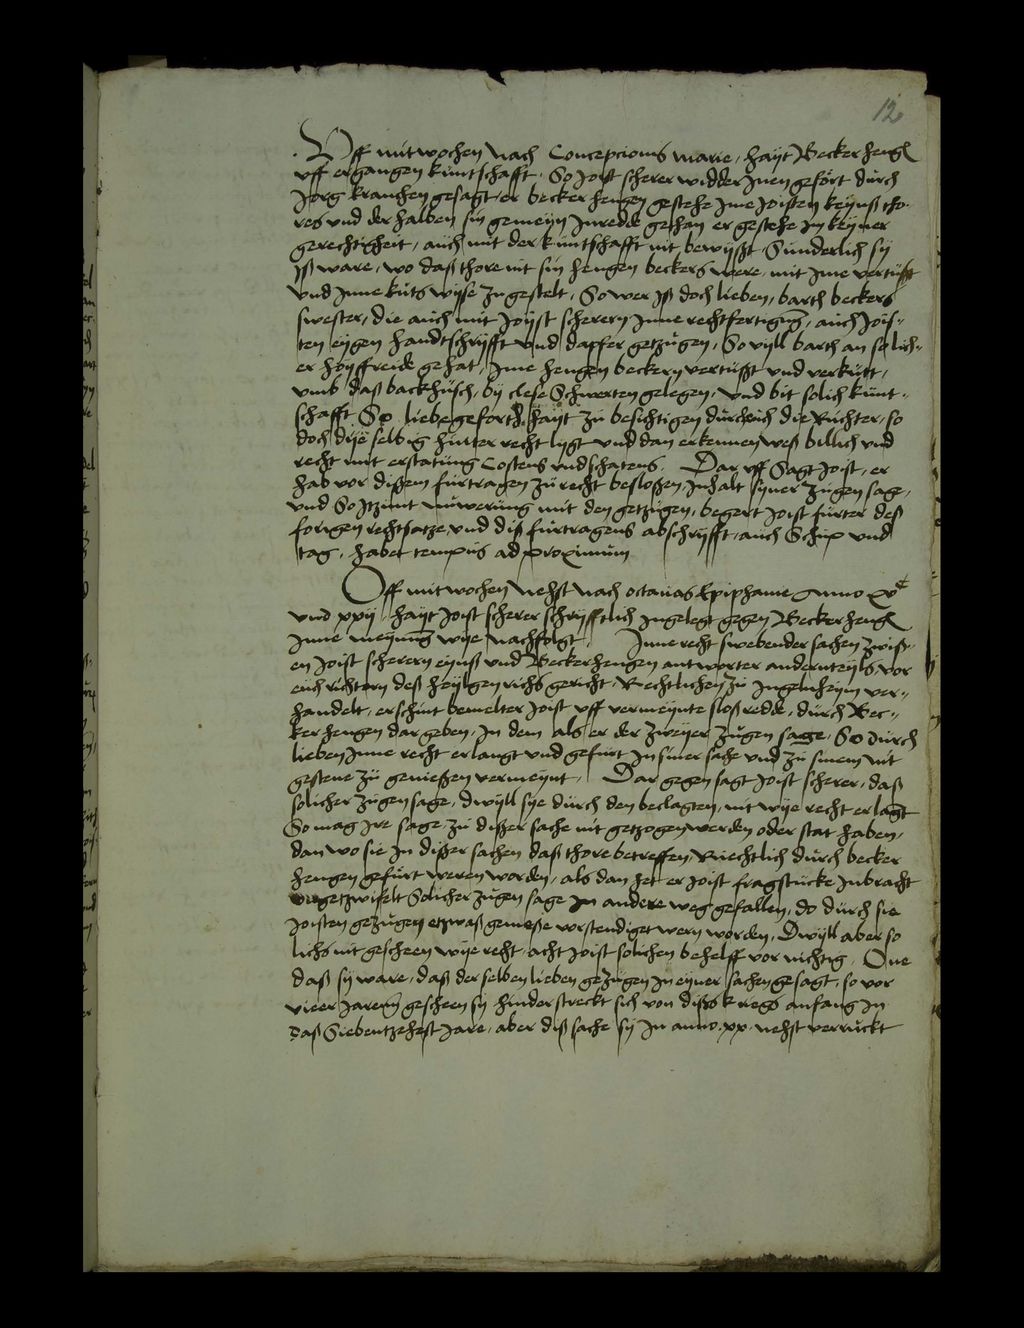 12
Uff mitwochen nach Concepcionis marie, hayt Becker heng
uff ergangen kuntschafft, So Joist scherer widder Inen gefort durch
Jorg kranchen gesagt, er becker hengen gestehe Ime Joisten keynß tho-
res und der halben sin gemeyn Inredde gethan er gestehe Im keyner
gerechtigkeit, auch mit der kuntschafft nit bewyßt Sunderlich sy
Iß ware, wo daß thore nit sin hengen beckers were, mit Ime vertußt
und Inne kuts wyse zugestelt, So wer Iß doch lieben, barth beckers
swester, die auch mit Joyst scherern Inne rechtfertigung, auch Jois-
ten eygen handtschryfft und dapfer getzugen, So vyll barth an solich-
er hoyffreide gehat, Ime hengen beckern vertußt und verkutt,
umb daß backhusch, by clese Schwerten gelegen, und bit solich kunt-
schafft So liebe gefort hayt zu besichtigen durch euch die Richter, so
doch dyeselbig hinter recht lygt und dan erkennen weß billich und
recht mit erstatung Costens und schatens. Dar uff Sagt Joist, er
hab vor dißem furtragen zu recht besloßen, Inhalt syner zugen sage,
und So Itzunt nuwerung mit den getzugen, begert Joist furter deß
forigen rechtsatze, und diß furtragens abschryfft, auch Schup und
tag, habet tempus ad proximum
Off mitwochen nehst nach octavas Epiphanie Anno xvc
und xxij, hayt Joist scherer schryfftlich Ingelegt gegen Becker heng
Inne meynung wye nachfolgt, Inne recht swebender sachen zwiß-
en Joist scherern eynß und Becker hengen antworter andernteyls, vor
euch richtern deß heylgen richs gericht, Rechtlichen zu Ingelnheym ver-
handelt, erschint bemelter Joist uff vermeynte sloßredde, durch Bec-
ker hengen dargeben, In dem als er der zweyer zugen sage, So durch
lieben Inne recht erlangt und gefurt In siner sache und zu sinem nit
gestene zu genießen vermeynt, Dar gegen sagt Joist scherer, daß
solicher zugen sage, dwyll sye durch den beclagten, nit wye recht erlagt
So mag Ire sage, zu dißer sache nit getzogen werden oder stat haben,
dan wo sie In dißer sachen daß thore betreffen, Rechtlich durch becker
hengen gefurt weren worden, als dan het er Joist fragstucke Inbracht
ungetzwifelt Solicher zugen sage In andere weg gefallen, do durch sie
Joisten gezugen etzwaß gemeße verstendiget wern worden, Dwyll aber so
lichs nit gescheen wye recht, acht Joist solichen behelff vor nichtig, One
daß sy ware, daß der selben lieben gezugen In eyner sachen gesagt, so vor
vieer Jaren gescheen sy hinder streckt sich von dißs kriegs anfang In
daß Siebentzehest Jare, aber diß sache sy In anno xx nehst verruckt